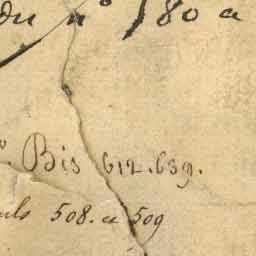 du n° 580 a
°. Bis 612.639.
uls 508. a 509